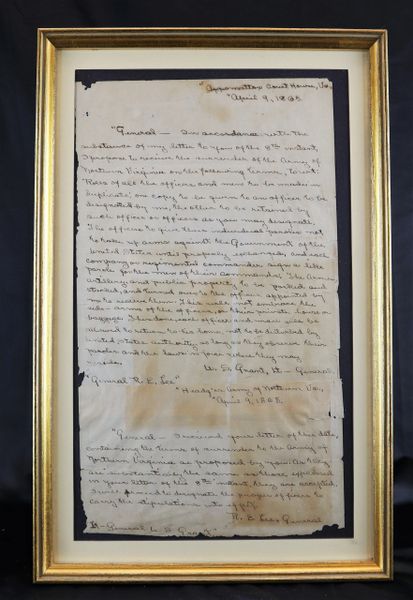 "Appomattox Court House, Va.
"April 9, 1865
"General — In accordance with the
substance of my letter to you of the 8th instant,
I propose to receive the surrender of the Army of
Northern Virginia on the following terms, to wit:
Rolls of all the officers and men to be made in
duplicate; one copy to be given to an officer to be
designated by me, the other to be retained by
such officer or officers as you may designate.
The officers to give their individual paroles not
to take up arms against the Government of the
United States until properly exchanged, and each
company or regimental commander sign a like
parole for the men of their commands. The Arms
artillery and public property to be parked and
stacked, and turned over to the officers appointed by
me to receive them. This will not embrace the
side-arms of the officers, or their private horses or
baggage. This done, each officer and man will be
allowed to return to his home, not to be disturbed by
United States authority so long as they observe their
paroles and the laws in force where they may
reside.
U. S. Grant, Lt – General.
"General R. E. Lee"
Headq'rs Army of Northern Va.,
"April 9, 1865.
"General — I received your letter of this date,
containing the terms of surrender to the Army of
Northern Virginia as proposed by you. As they
are substantially the same as those expressed
in your letter of the 8th instant, they are accepted.
I will proceed to designate the proper officers to
carry the stipulations into effect.
R. E. Lee, General
Lt – General U. S. Grant